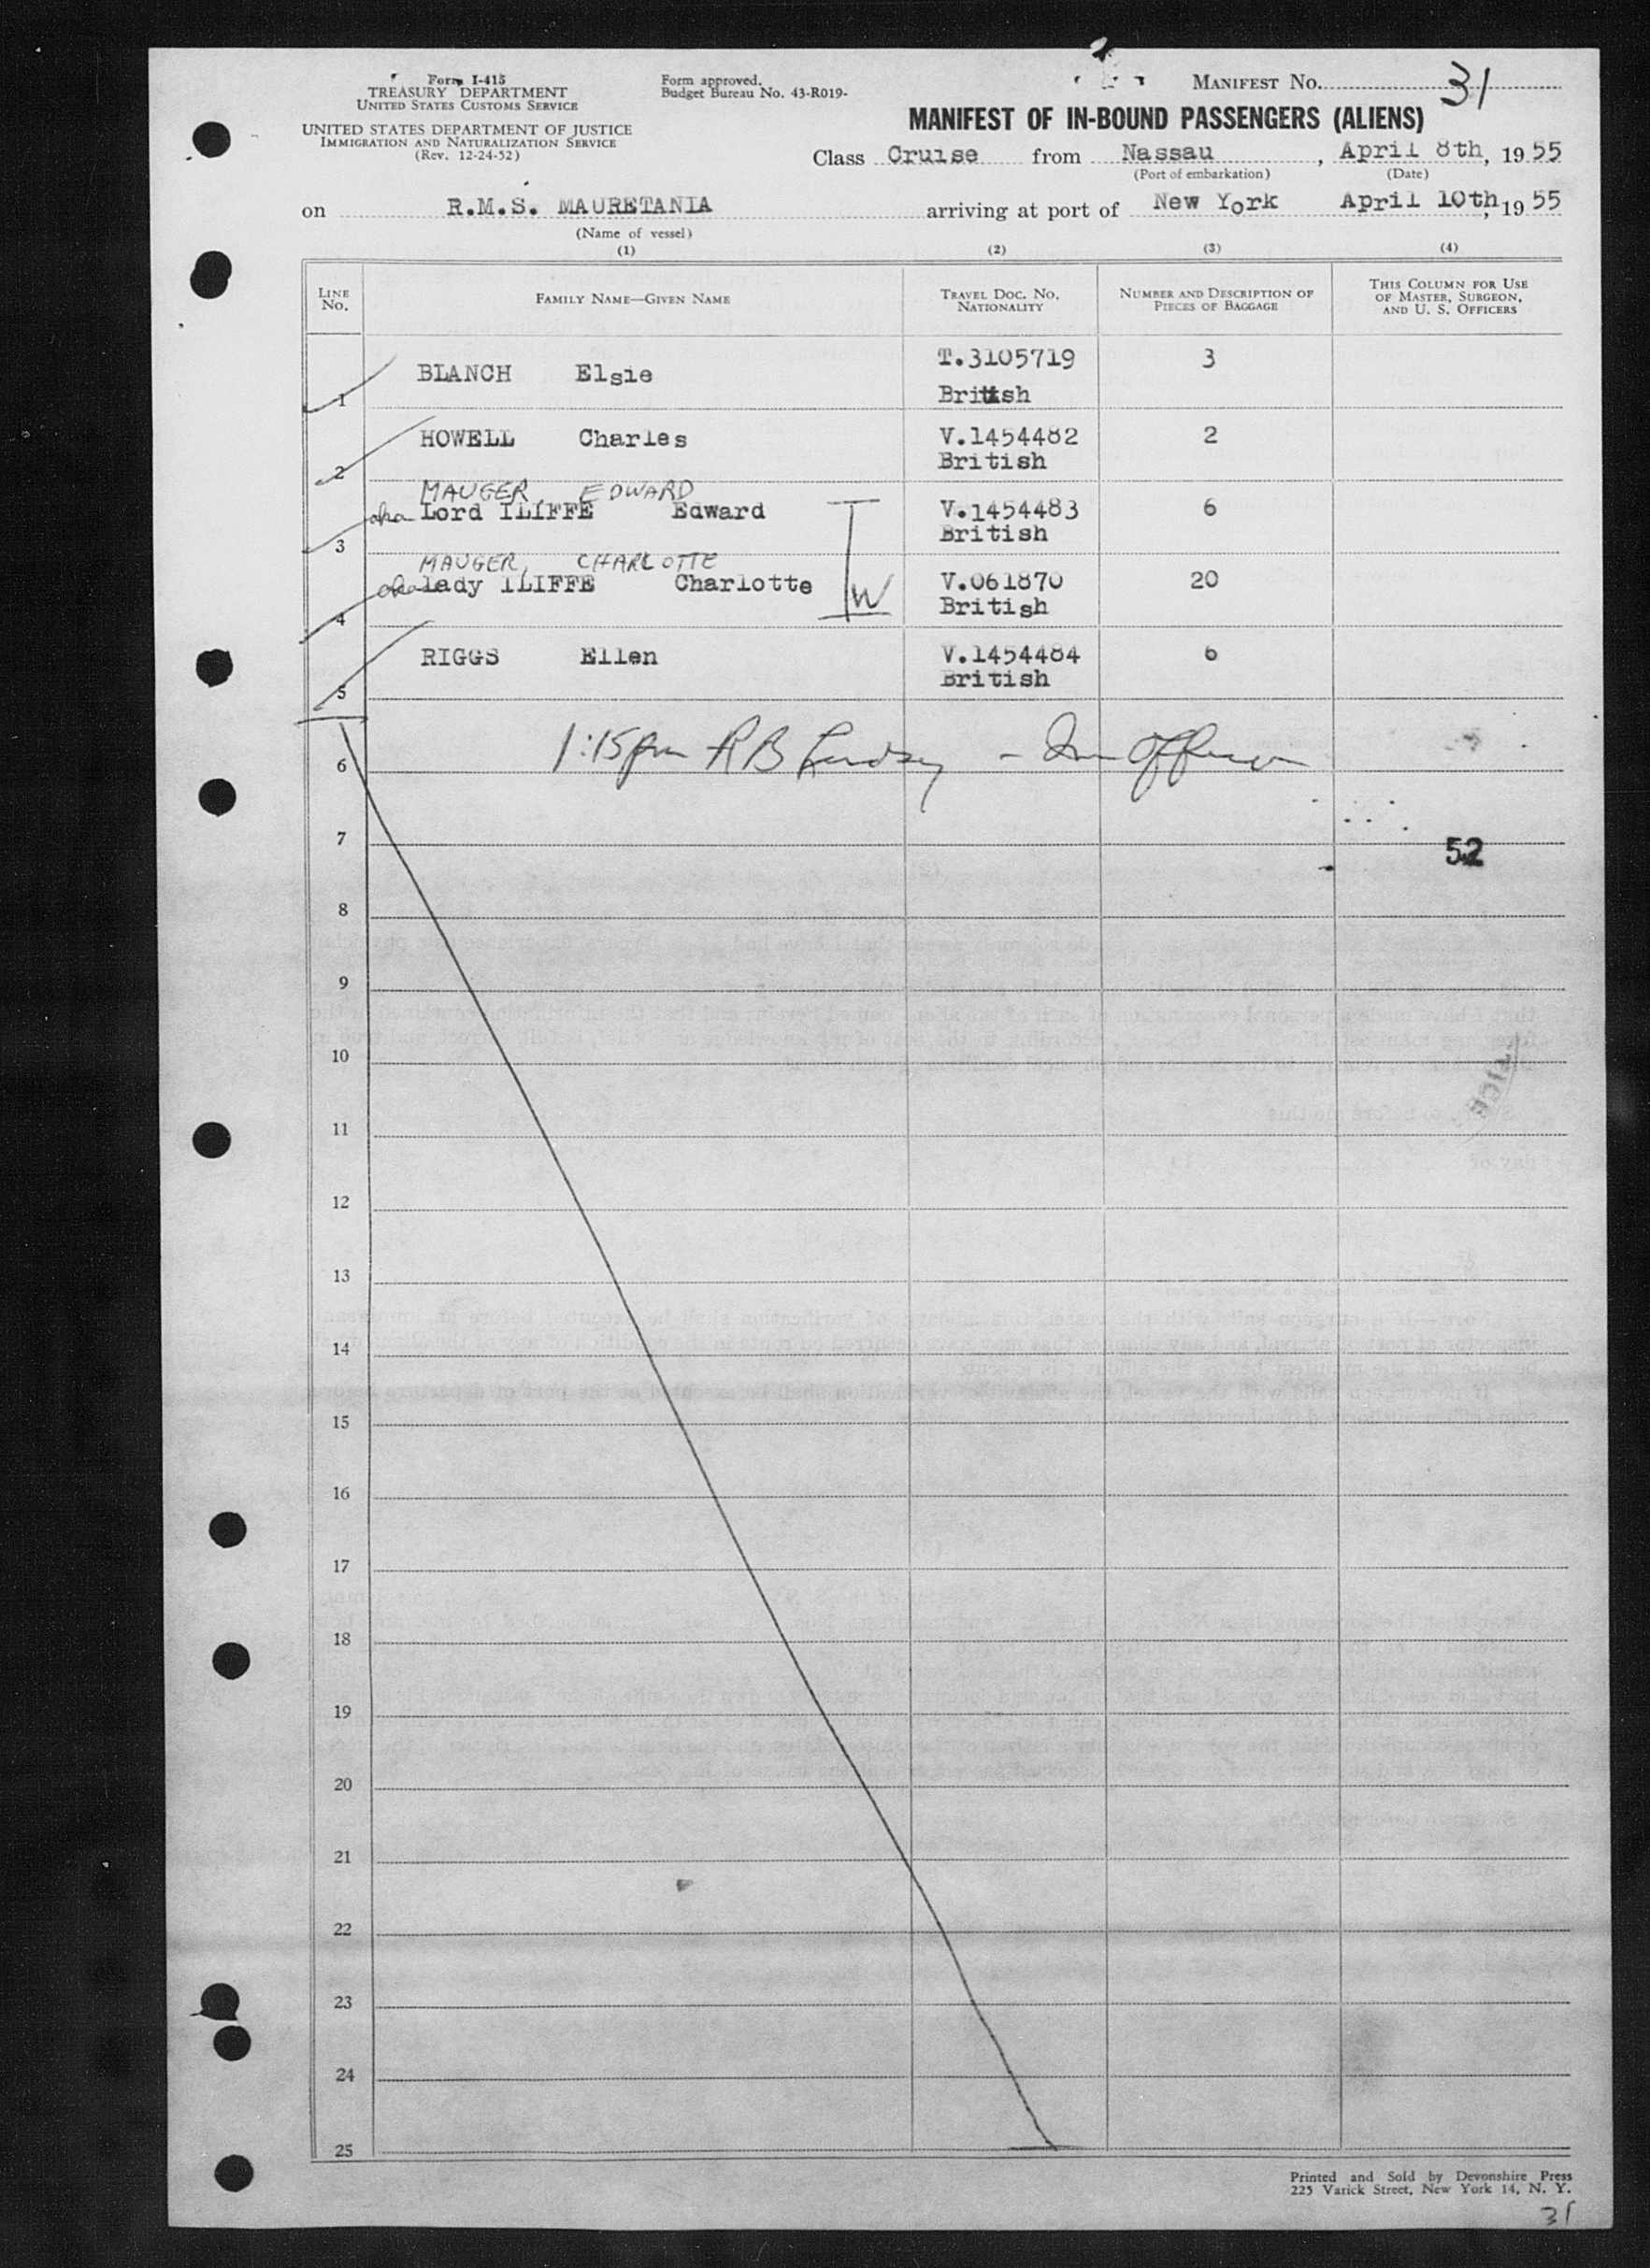 Form I-415
TREASURY DEPARTMENT
UNITED STATES CUSTOMS SERVICE
UNITED STATES DEPARTMENT OF JUSTICE
IMMIGRATION AND NATURALIZATION SERVICE
(Rev. 12-24-52)
Form approved.
Budget Bureau No. 43-R019-
MANIFEST No. 31
MANIFEST OF IN-BOUND PASSENGERS (ALIENS)
Class Cruise from Nassau, April 8th, 1955
(Port of embarkation) (Date)
on R.M.S. MAURETANIA arriving at port of New York April 10th, 1955
(Name of vessel)
(1) (2) (3) (4)
LINE No. FAMILY NAME—GIVEN NAME TRAVEL DOC. NO. NATIONALITY NUMBER AND DESCRIPTION OF PIECES OF BAGGAGE THIS COLUMN FOR USE OF MASTER, SURGEON, AND U. S. OFFICERS
BLANCH Elsie T.3105719 3
1 British
HOWELL Charles V.1454482 2
2 British
MAUGER, EDWARD
aka Lord ILIFFE Edward V.1454483 6
3 British
MAUGER, CHARLOTTE
aka Lady ILIFFE Charlotte W V.061870 20
4 British
RIGGS Ellen V.1454484 6
5 British
1:15pm R B Lindsey - Imm Officer
6
7
52
8
9
10
11
12
13
14
15
16
17
18
19
20
21
22
23
24
25
Printed and Sold by Devonshire Press
225 Varick Street, New York 14, N. Y.
31